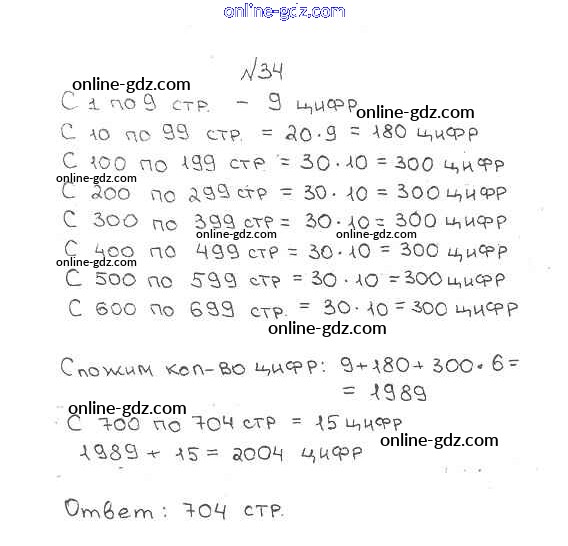 online-gdz.com
№34
online-gdz.com
С 1 по 9 стр. - 9 цифр
online-gdz.com
С 10 по 99 стр. = 20·9 = 180 цифр
С 100 по 199 стр. = 30·10 = 300 цифр
online-gdz.com
С 200 по 299 стр = 30·10 = 300 цифр
С 300 по 399 стр = 30·10 = 300 цифр
online-gdz.com online-gdz.com
С 400 по 499 стр = 30·10 = 300 цифр
online-gdz.com
С 500 по 599 стр = 30·10 = 300 цифр
С 600 по 699 стр. = 30·10 = 300 цифр
online-gdz.com
Сложим кол-во цифр: 9+180+300·6=
= 1989
online-gdz.com
С 700 по 704 стр = 15 цифр
online-gdz.com
1989 + 15 = 2004 цифр
Ответ: 704 стр.